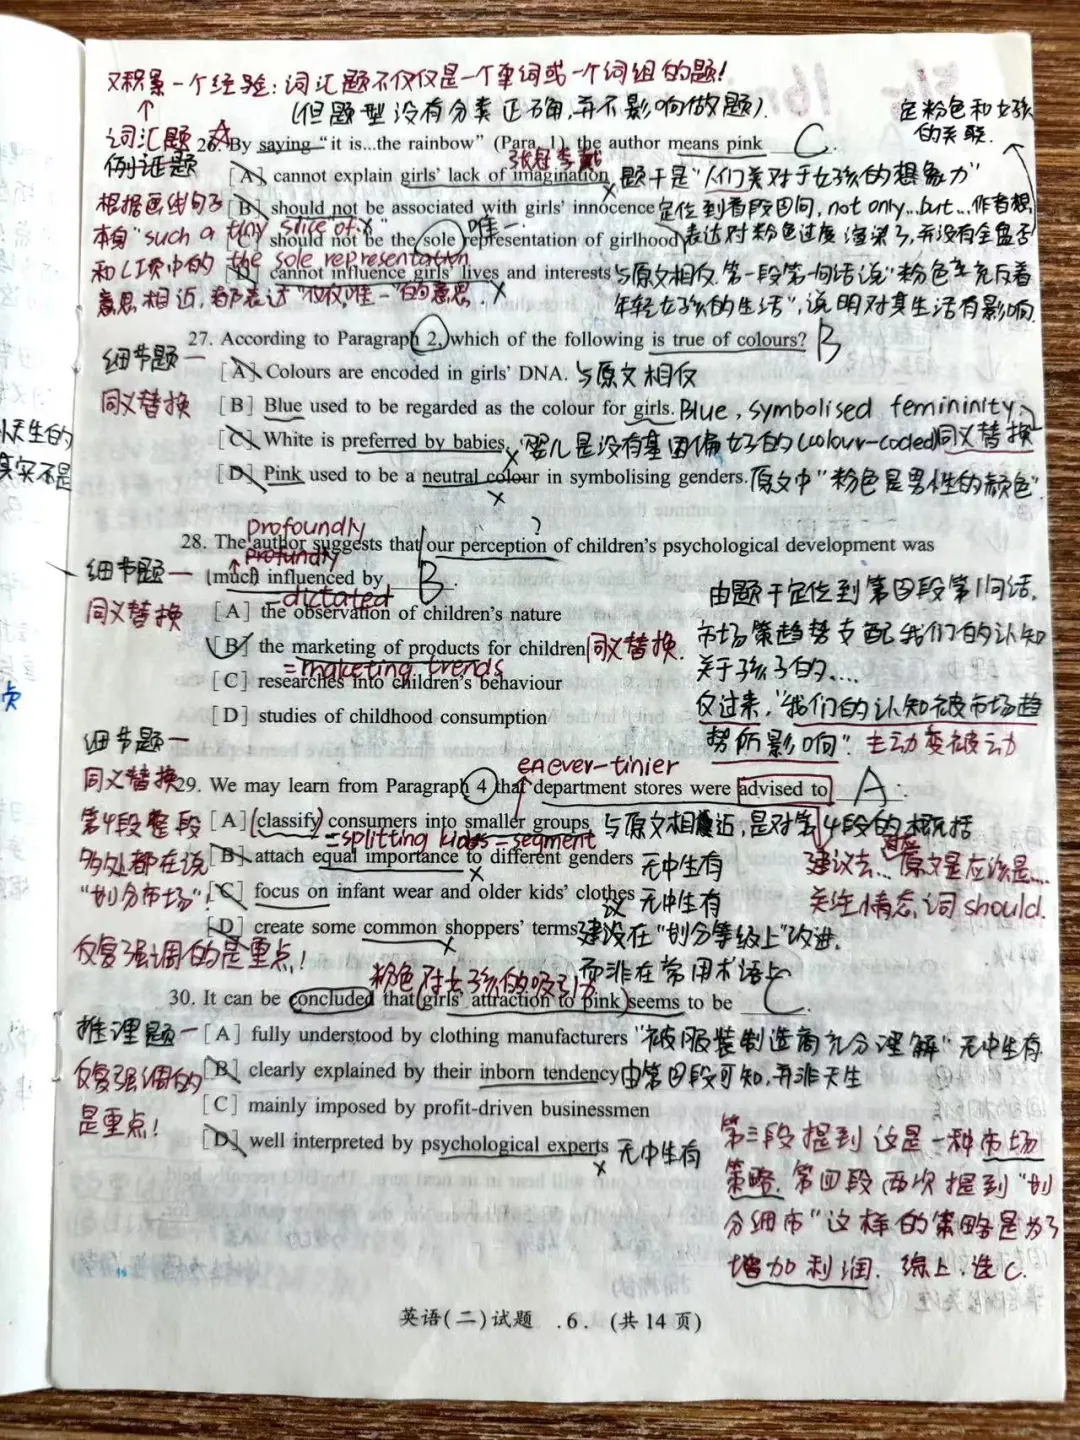 又积累一个经验:词汇题不仅仅是一个单词或一个词组的题!
(但题型没有分类正确,并不影响做题).
定粉色和女孩
的关联.
词汇题
26. By saying "it is...the rainbow" (Para. 1), the author means pink ____. C
例证题
张冠李戴
[A] cannot explain girls' lack of imagination 题干是"人们关对于女孩的想象力"
根据画线句子
[B] should not be associated with girls' innocence 定位到首段四问, not only...but...作者想
本身"such a tiny slice of" 唯一
[C] should not be the sole representation of girlhood 表达对粉色过度渲染了,并没有全盘否
和C项中的 the sole representation
[D] cannot influence girls' lives and interests 与原文相反.第一段第一句话说"粉色充斥着
意思相近,都表达"仅仅,唯一"的意思.
年轻女孩的生活",说明对其生活有影响.
27. According to Paragraph 2, which of the following is true of colours? B
细节题—
[A] Colours are encoded in girls' DNA. 与原文相反
同义替换
[B] Blue used to be regarded as the colour for girls. Blue, symbolised femininity
天生的
[C] White is preferred by babies. 婴儿是没有基因偏好的(colour-coded) 同义替换
其实不是
[D] Pink used to be a neutral colour in symbolising genders. 原文中"粉色是男性的颜色".
profoundly
28. The author suggests that our perception of children's psychological development was
?
profundly
细节题—
(much) influenced by ____. B
dictated
同义替换
[A] the observation of children's nature
[B] the marketing of products for children 同义替换.
= maketing trends
[C] researches into children's behaviour
[D] studies of childhood consumption
由题干定位到第四段第1句话.
市场策趋势支配我们的认知
关于孩子的....
反过来,"我们的认知被市场趋
势所影响". 主动变被动
细节题—
同义替换
en ever-tinier
29. We may learn from Paragraph 4 that department stores were advised to ____. A
第4段整段
[A] (classify) consumers into smaller groups 与原文相近,是对第4段的概括
= splitting kids = segment
多处都在说
[B] attach equal importance to different genders 无中生有
"划分市场"!
[C] focus on infant wear and older kids' clothes 无中生有
[D] create some common shoppers' terms 建议在"划分等级上"改进.
而非在常用术语上
建议去... 原文是应该是....
关注情态词 should.
反复强调的是重点!
粉色对女孩的吸引力
30. It can be concluded that (girls' attraction to pink) seems to be ____. C
推理题—
[A] fully understood by clothing manufacturers "被服装制造商充分理解" 无中生有
反复强调的
[B] clearly explained by their inborn tendency 由第四段可知,并非天生
是重点!
[C] mainly imposed by profit-driven businessmen
[D] well interpreted by psychological experts 无中生有
第三段提到这是一种市场
策略.第四段两次提到"划
分细市"这样的策略是为了
增加利润. 综上,选C.
英语(二)试题 .6. (共14页)